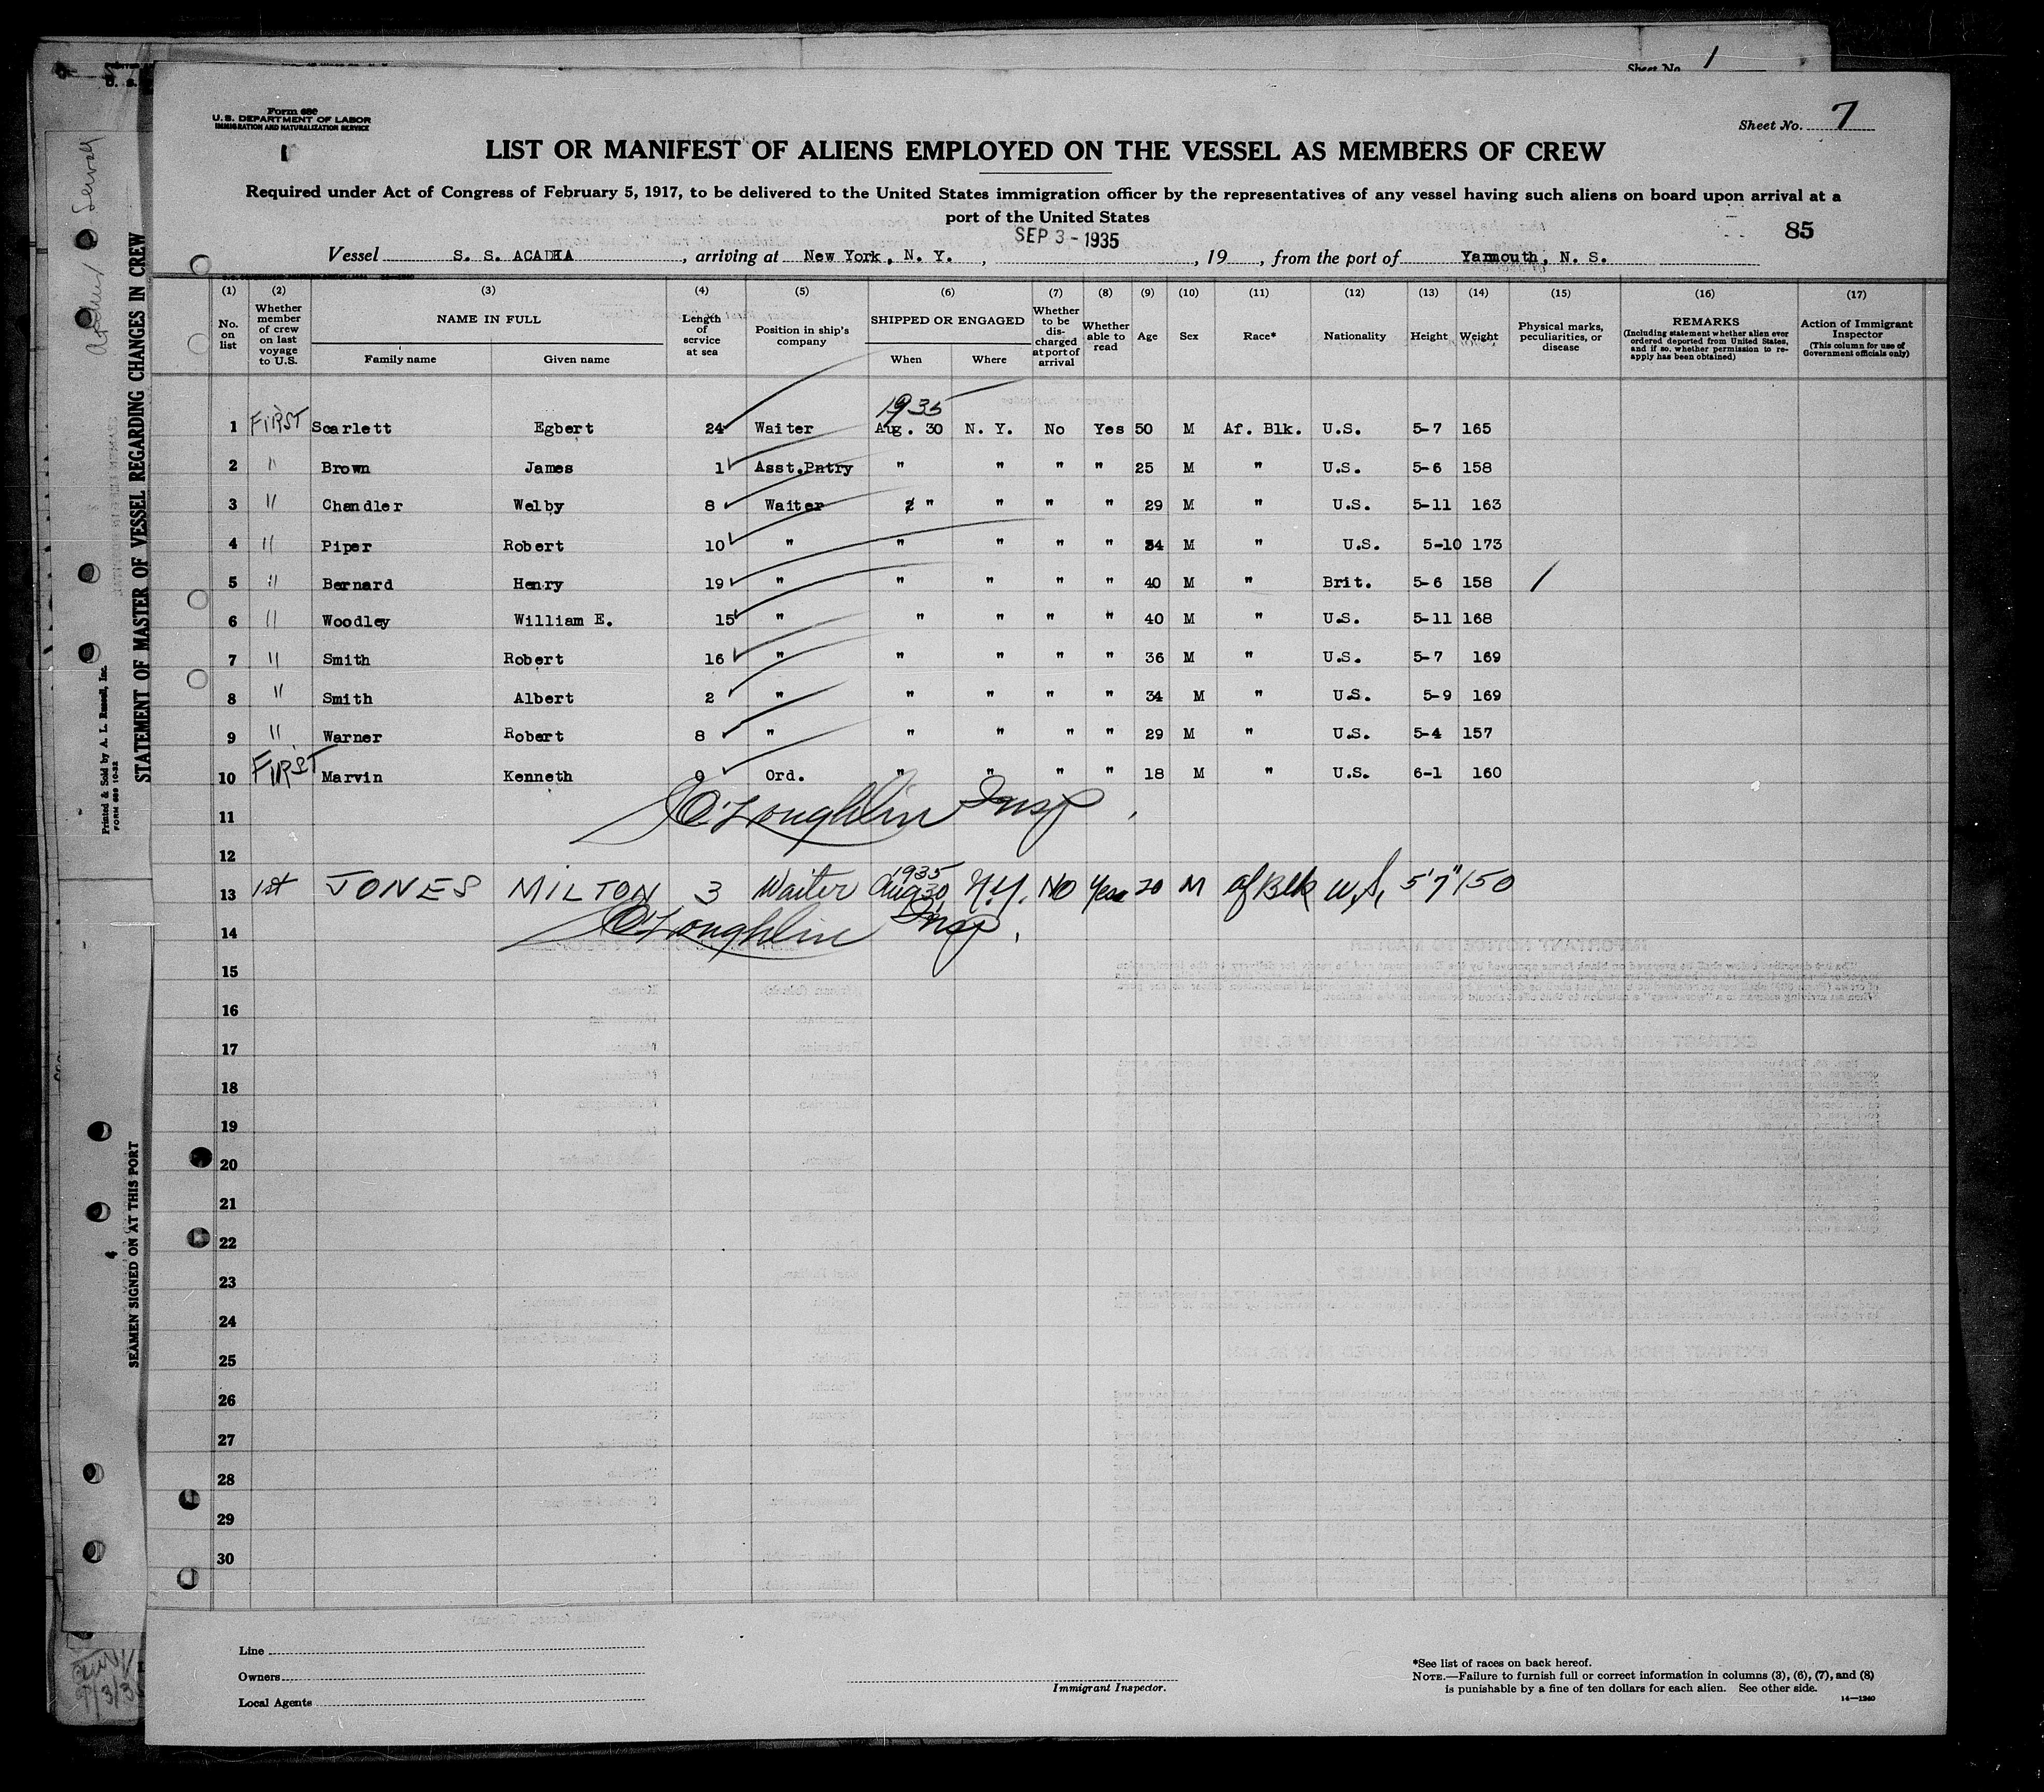 Sheet No. 1
Form 680
U. S. DEPARTMENT OF LABOR
IMMIGRATION AND NATURALIZATION SERVICE
Sheet No. 7
LIST OR MANIFEST OF ALIENS EMPLOYED ON THE VESSEL AS MEMBERS OF CREW
Required under Act of Congress of February 5, 1917, to be delivered to the United States immigration officer by the representatives of any vessel having such aliens on board upon arrival at a
port of the United States
SEP 3 - 1935
85
Vessel S. S. ACADIA, arriving at New York, N. Y., , 19 , from the port of Yarmouth, N. S.
(1) (2) (3) (4) (5) (6) (7) (8) (9) (10) (11) (12) (13) (14) (15) (16) (17)
No. on list
Whether member of crew on last voyage to U.S.
NAME IN FULL
Family name Given name
Length of service at sea
Position in ship's company
SHIPPED OR ENGAGED
When Where
Whether to be discharged at port of arrival
Whether able to read
Age
Sex
Race*
Nationality
Height
Weight
Physical marks, peculiarities, or disease
REMARKS
(Including statement whether alien ever ordered deported from United States, and if so, whether permission to reapply has been obtained)
Action of Immigrant Inspector
(This column for use of Government officials only)
1935
1 FIRST Scarlett Egbert 24 Waiter Aug. 30 N. Y. No Yes 50 M Af. Blk. U.S. 5-7 165
2 " Brown James 1 Asst.Pntry " " " " 25 M " U.S. 5-6 158
3 " Chandler Welby 8 Waiter " " " " 29 M " U.S. 5-11 163
4 " Piper Robert 10 " " " " " 34 M " U.S. 5-10 173
5 " Bernard Henry 19 " " " " " 40 M " Brit. 5-6 158 /
6 " Woodley William E. 15 " " " " " 40 M " U.S. 5-11 168
7 " Smith Robert 16 " " " " " 36 M " U.S. 5-7 169
8 " Smith Albert 2 " " " " " 34 M " U.S. 5-9 169
9 " Warner Robert 8 " " " " " 29 M " U.S. 5-4 157
10 FIRST Marvin Kenneth 0 Ord. " " " " 18 M " U.S. 6-1 160
11 O'Loughlin Insp.
12
1935
13 1st JONES MILTON 3 Waiter Aug 30, N.Y. No Yes 20 M af Blk U.S. 5'7" 150
14 O'Loughlin Insp.
15
16
17
18
19
20
21
22
23
24
25
26
27
28
29
30
Line
Owners
Local Agents
Immigrant Inspector.
*See list of races on back hereof.
NOTE.—Failure to furnish full or correct information in columns (3), (6), (7), and (8)
is punishable by a fine of ten dollars for each alien. See other side.
14—1240
STATEMENT OF MASTER OF VESSEL REGARDING CHANGES IN CREW
Printed & Sold by A. L. Russell, Inc.
FORM 689 10-32
SEAMEN SIGNED ON AT THIS PORT